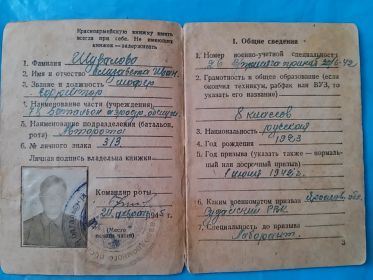 Красноармейскую книжку иметь
всегда при себе. Не имеющих
книжек — задерживать
1. Фамилия Шувалова
2. Имя и отчество Елизавета Иван.
3. Звание и должность шофер
4. Наименование части (учреждения)
78 Батальон аэродр. обслуж.
5. Наименование подразделения (батальон,
рота) Авторота
6. № личного знака 313
Личная подпись владельца книжки
Командир роты
1945 г.
(Место
печати части)
I. Общие сведения
1. Номер военно-учетной специальности
2. Грамотность и общее образование (если
окончил техникум, рабфак или ВУЗ, то
указать его название)
8 классов
3. Национальность русская
4. Год рождения 1923
5. Год призыва (указать также — нормаль-
ный или досрочный призыв)
1 июня 1942 г.
6. Каким военкоматом призван Ярослав. обл.
РВК
7. Специальность до призыва
Лаборант.
3